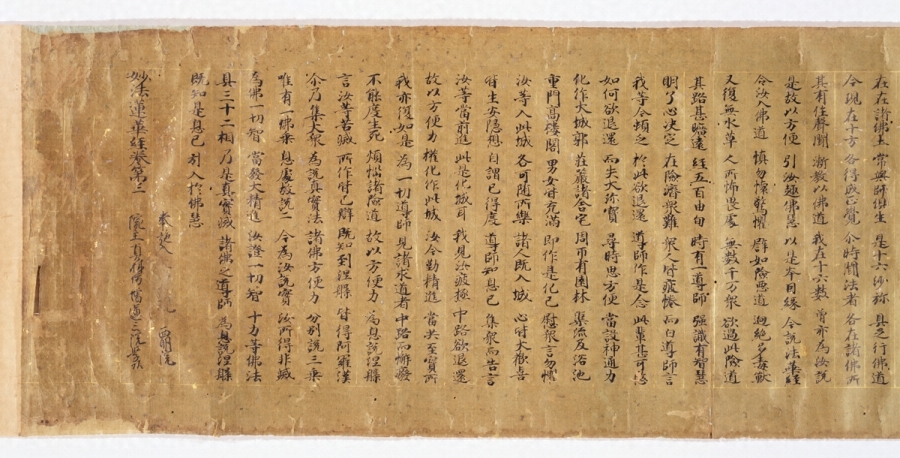 在在諸佛土 常與師俱生 是十六沙彌 具足行佛道
今現在十方 各得成正覺 尒時聞法者 各在諸佛所
其有住聲聞 漸教以佛道 我在十六數 曾亦為汝說
是故以方便 引汝趣佛慧 以是本因緣 今說法華經
令汝入佛道 慎勿懷驚懼 譬如險惡道 迥絕多毒獸
又復無水草 人所怖畏處 無數千万眾 欲過此險道
其路甚曠遠 經五百由旬 時有一導師 強識有智慧
明了心決定 在險濟眾難 眾人皆疲惓 而白導師言
我等今頓乏 於此欲退還 導師作是念 此輩甚可愍
如何欲退還 而失大珍寶 尋時思方便 當設神通力
化作大城郭 莊嚴諸舍宅 周帀有園林 渠流及浴池
重門高樓閣 男女皆充滿 即作是化已 慰眾言勿懼
汝等入此城 各可隨所樂 諸人既入城 心皆大歡喜
皆生安隱想 自謂已得度 導師知息已 集眾而告言
汝等當前進 此是化城耳 我見汝疲極 中路欲退還
故以方便力 權化作此城 汝今勤精進 當共至寶所
我亦復如是 為一切導師 見諸求道者 中路而懈廢
不能度生死 煩惱諸險道 故以方便力 為息說涅槃
言汝等苦滅 所作皆已辦 既知到涅槃 皆得阿羅漢
尒乃集大眾 為說真實法 諸佛方便力 分別說三乘
唯有一佛乘 息處故說二 今為汝說實 汝所得非滅
為佛一切智 當發大精進 汝證一切智 十力等佛法
具三十二相 乃是真實滅 諸佛之導師 為息說涅槃
既知是息已 引入於佛慧
妙法蓮華經卷第三